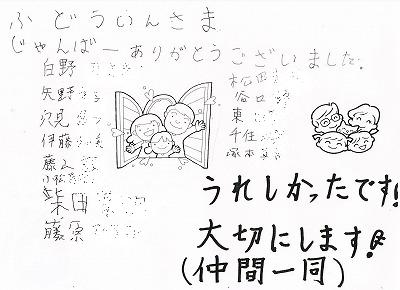 ふどういんさま
じゃんばーありがとうございました。
白野
矢野
穴見
伊藤
藤
小松
柴田
藤原
松田
谷口
東
千住
塚本
うれしかったです!
大切にします!
(仲間一同)